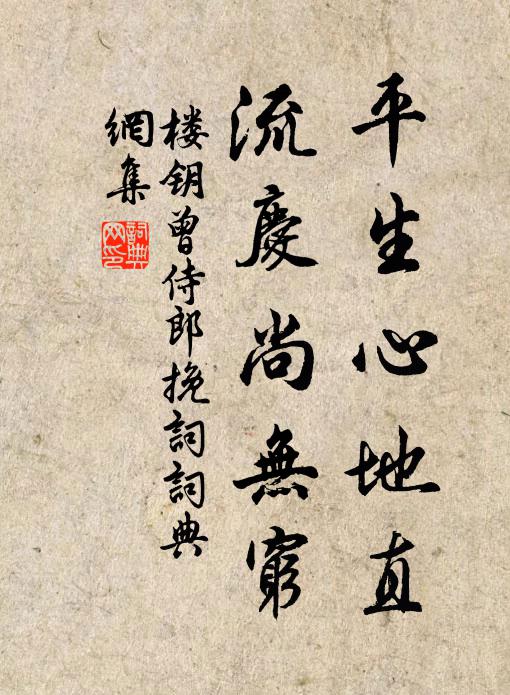 平生心地直
流慶尚無窮
楼钥曾侍郎挽詞詞典
網集
詞典
网印